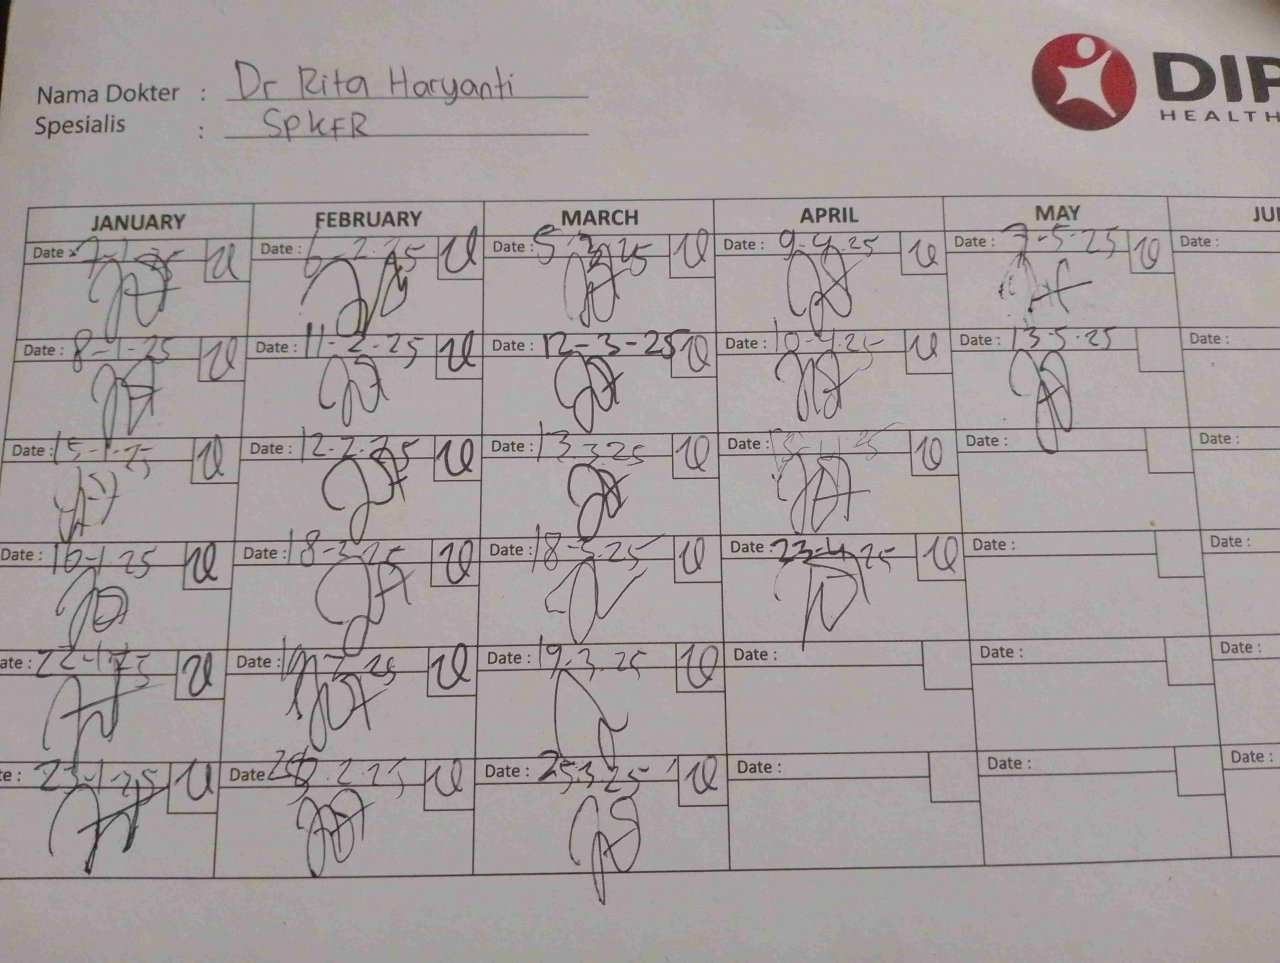 Nama Dokter : Dr Rita Haryanti
Spesialis : SPKFR
DIP
HEALTH
JANUARY FEBRUARY MARCH APRIL MAY JU
Date : Date : 6-2.25 Date : 5 3 25 Date : 9-4.25 Date : 7-5-25 Date :
Date : 8-1-25 Date : 11-2-25 Date : 12-3-25 Date : 10-4.25 Date : 13-5-25 Date :
Date : 15-1-25 Date : 12-2-25 Date : 13.3.25 Date : Date : Date :
Date : 16-1-25 Date : 18- Date : 18-3.25 Date : 23-4-25 Date : Date :
ate : 22-1-25 Date : 19-2.25 Date : 19.3.25 Date : Date : Date :
te : 23-1-25 Date 2.25 Date : 25.3.25 Date : Date : Date :